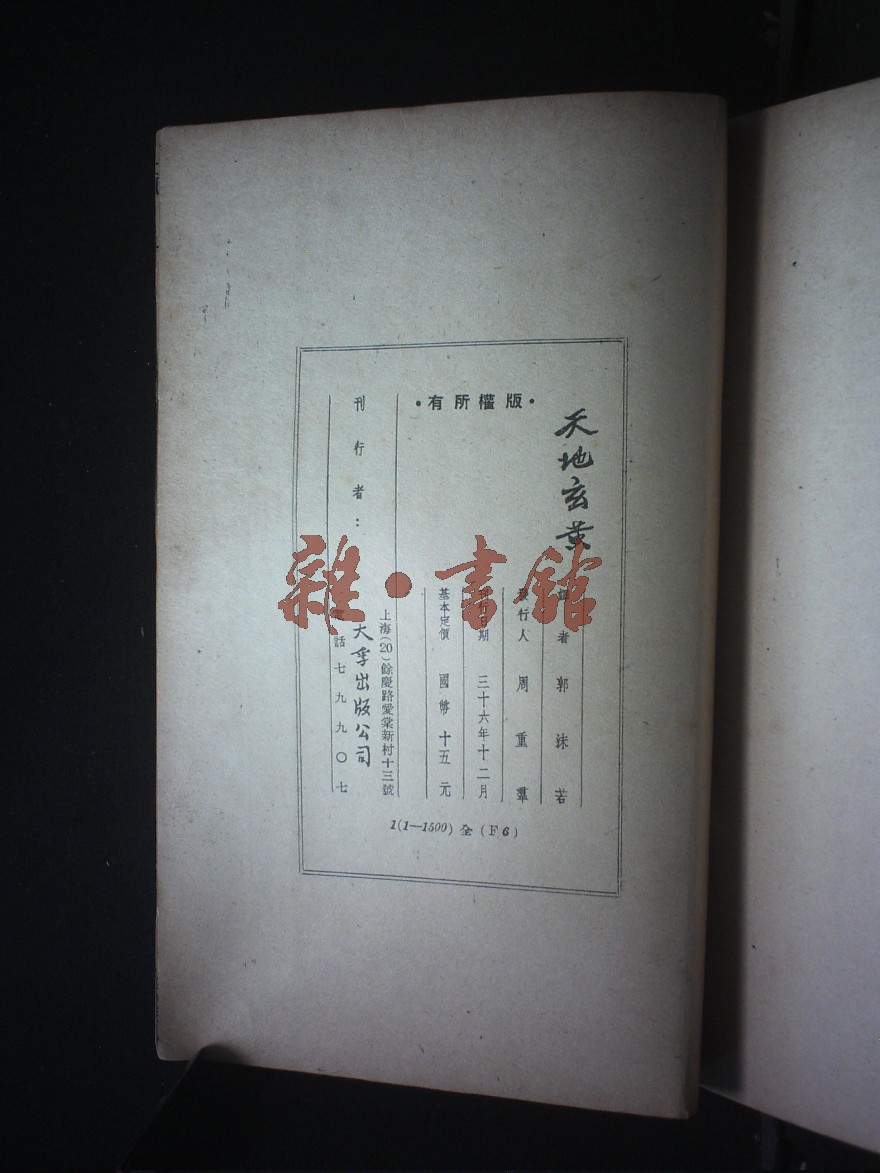 天地玄黃
・版權所有・
撰者 郭沫若
發行人 周重羣
刊行日期 三十六年十二月
基本定價 國幣十五元
刊行者：
上海(20)餘慶路愛棠新村十三號
大孚出版公司
電話七九九〇七
1(1—1500)全(F6)
雜・書館